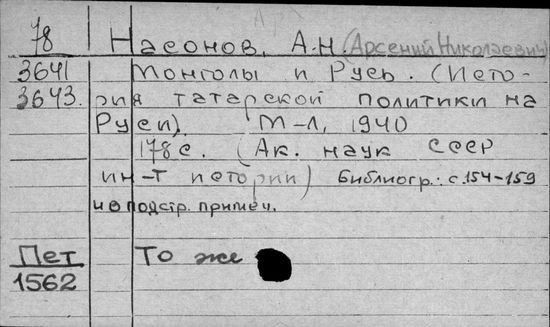 78 Насонов, А.Н. (Арсений Николаевич)
3641 Монголы и Русь. (Исто-
3643. рия татарской политики на
Руси). М-Л, 1940
178 с. (Ак. наук СССР
ин-т истории) Библиогр.: с. 154-159
и в подстр. примеч.
Пет То же
1562